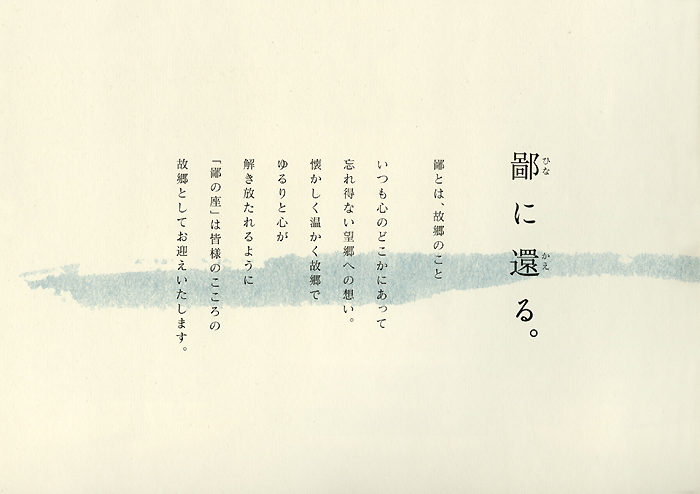 鄙に還る。
ひな
かえ
鄙とは、故郷のこと
いつも心のどこかにあって
忘れ得ない望郷への想い。
懐かしく温かく故郷で
ゆるりと心が
解き放たれるように
「鄙の座」は皆様のこころの
故郷としてお迎えいたします。